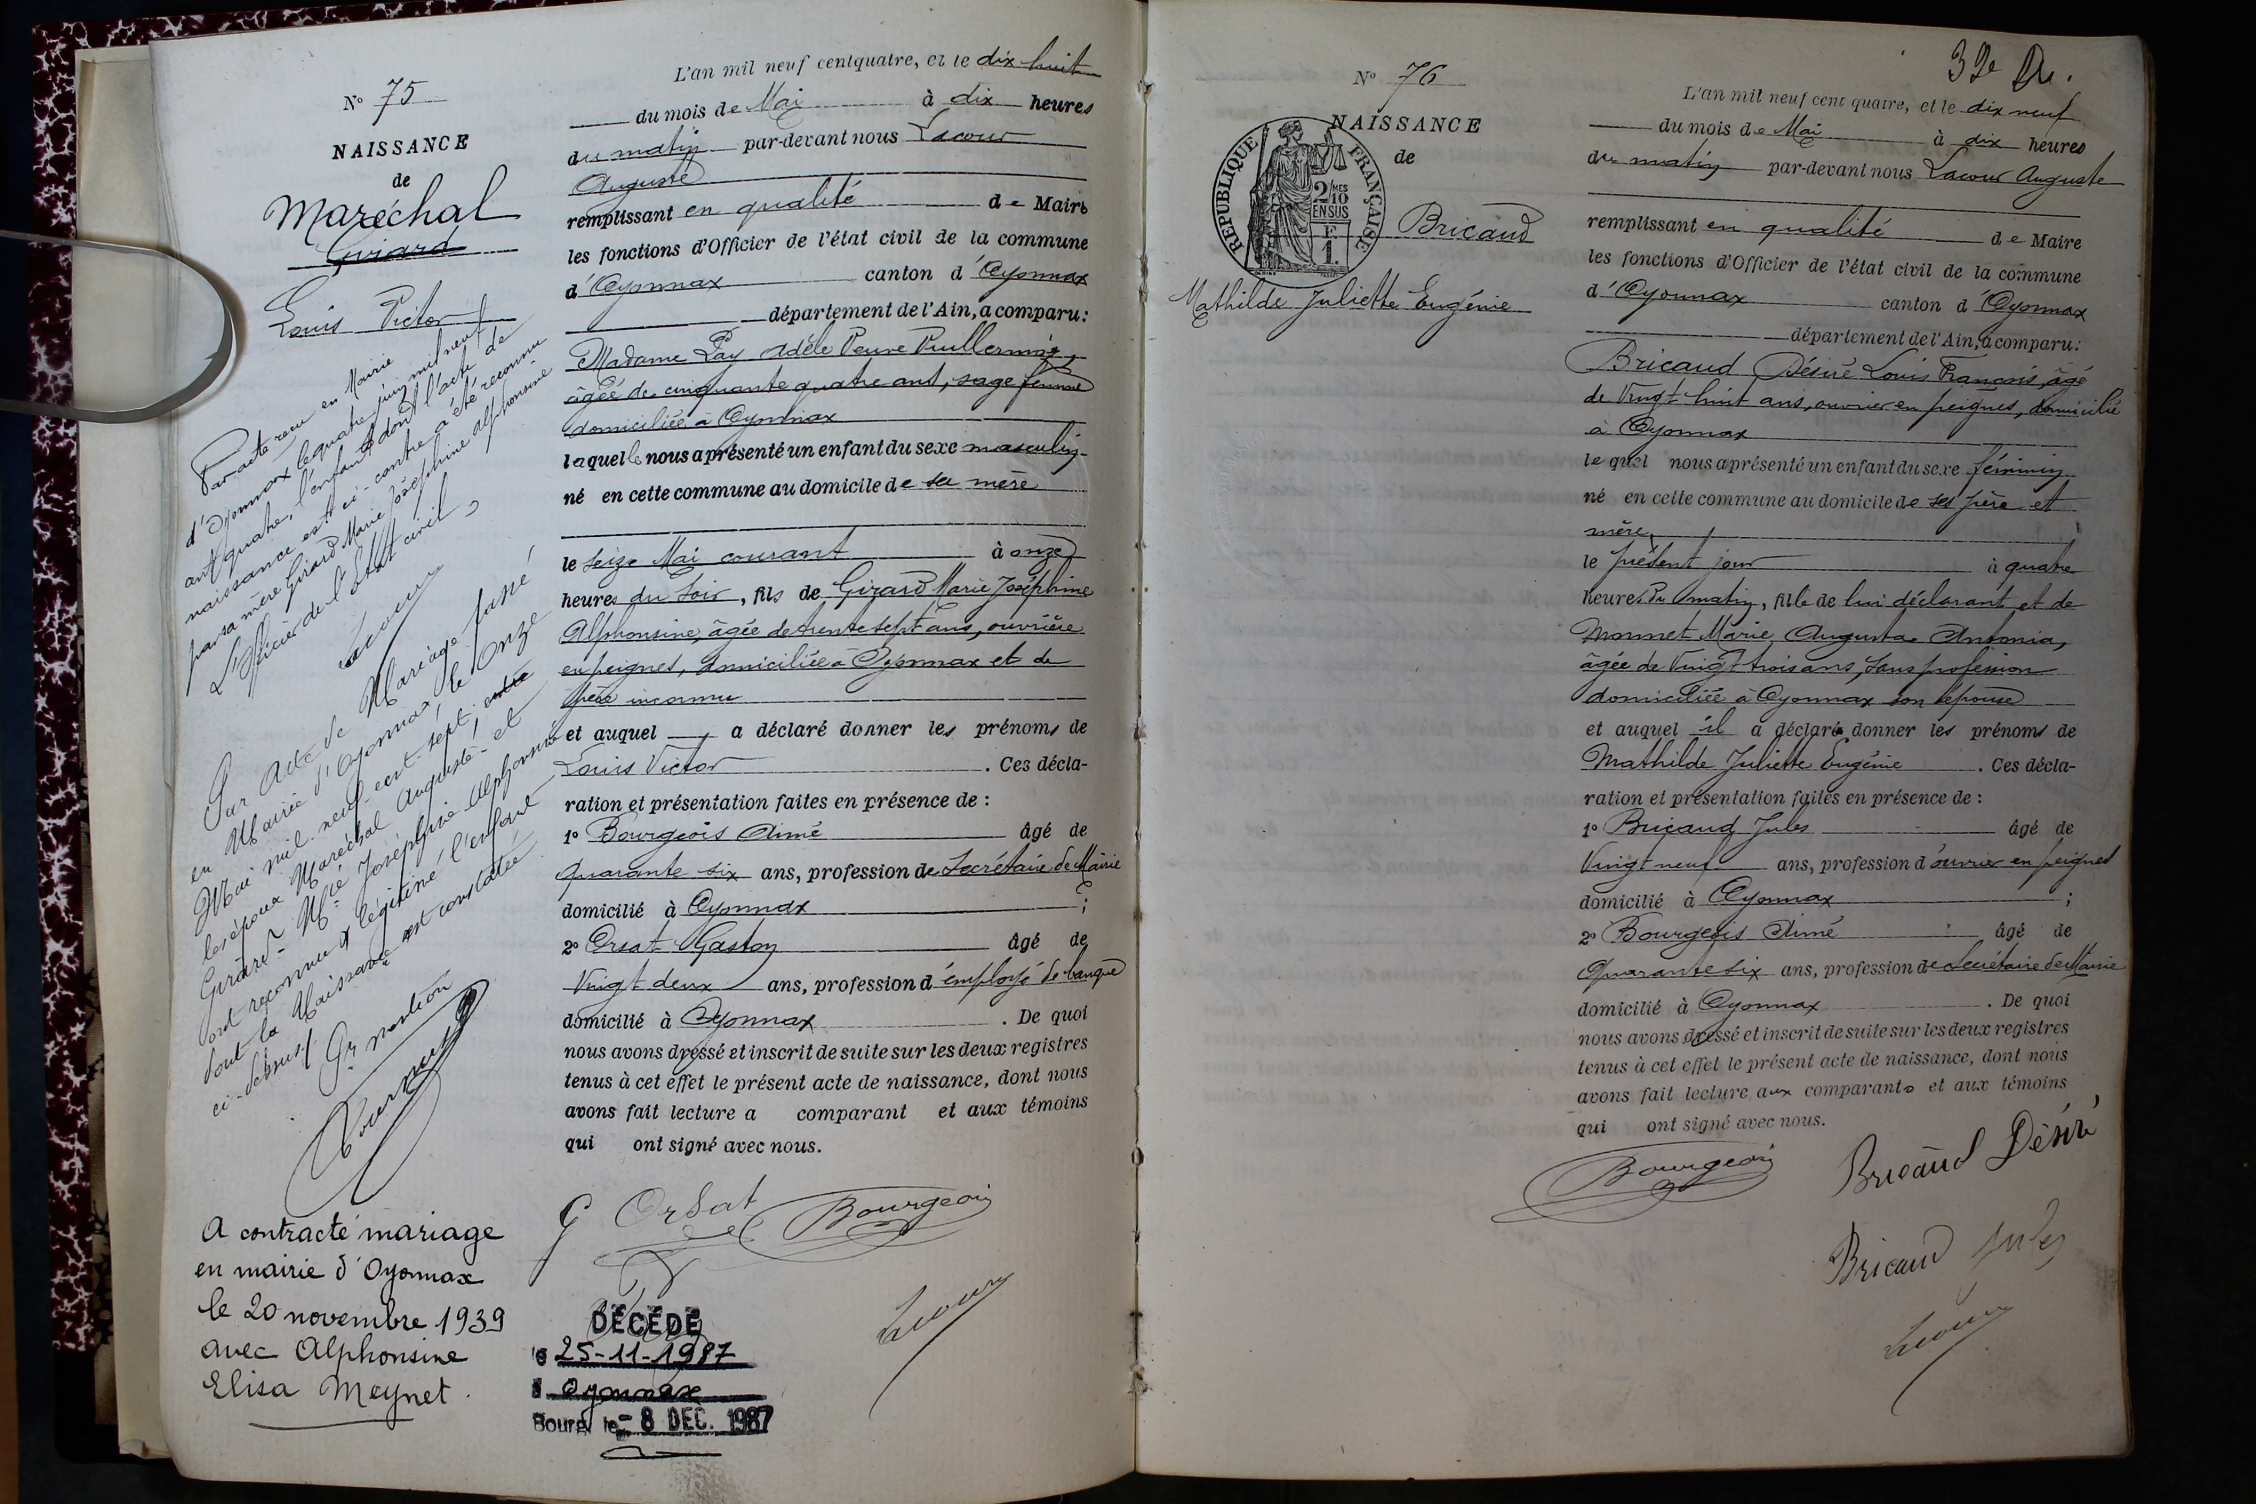 N° 75
NAISSANCE
de
Maréchal
Girard
Louis Victor
Par acte reçu en Mairie
d'Oyonnax le quatre juin mil neuf
cent quatre, l'enfant dont l'acte de
naissance est ci-contre a été reconnu
par sa mère Girard Marie Joséphine Alphonsine
L'Officier de l'Etat civil,
Lacour
Par Acte de Mariage passé
en Mairie d'Oyonnax, le onze
Mai mil neuf cent sept, entre
les époux Maréchal Auguste et
Girard Mie Joséphine Alphonsine
ont reconnu & légitimé l'enfant
dont la Naissance est constatée
ci-dessus.
Pr mention
A contracté mariage
en mairie d'Oyonnax
le 20 novembre 1939
avec Alphonsine
Elisa Meynet.
L'an mil neuf cent quatre, et le dix huit
du mois de Mai à dix heures
du matin par-devant nous Lacour
Auguste
remplissant en qualité de Maire
les fonctions d'Officier de l'état civil de la commune
d'Oyonnax canton d'Oyonnax
département de l'Ain, a comparu:
Madame Pay Adèle Veuve Puillermoz,
âgée de cinquante quatre ans, sage femme
domiciliée à Oyonnax
laquelle nous a présenté un enfant du sexe masculin
né en cette commune au domicile de sa mère
le seize Mai courant à onze
heures du soir, fils de Girard Marie Joséphine
Alphonsine, âgée de trente sept ans, ouvrière
en peignes, domiciliée à Oyonnax et de
père inconnu
et auquel a déclaré donner les prénoms de
Louis Victor. Ces décla-
ration et présentation faites en présence de :
1° Bourgeois Aimé âgé de
quarante six ans, profession de Secrétaire de Mairie
domicilié à Oyonnax ;
2° Orsat Gaston âgé de
Vingt deux ans, profession d'employé de banque
domicilié à Oyonnax. De quoi
nous avons dressé et inscrit de suite sur les deux registres
tenus à cet effet le présent acte de naissance, dont nous
avons fait lecture a comparant et aux témoins
qui ont signé avec nous.
G Orsat Bourgeois
Lacour
DÉCÉDÉ
le 25-11-1987
à Oyonnax
Bourg, le - 8 DEC. 1987
32e Du.
N° 76
NAISSANCE
de
RÉPUBLIQUE FRANÇAISE
2/MES
10
EN SUS
F.
1.
Bricaud
Mathilde Juliette Eugénie
L'an mil neuf cent quatre, et le dix neuf
du mois de Mai à dix heures
du matin par-devant nous Lacour Auguste
remplissant en qualité de Maire
les fonctions d'Officier de l'état civil de la commune
d'Oyonnax canton d'Oyonnax
département de l'Ain, a comparu:
Bricaud Désiré Louis François, âgé
de Vingt huit ans, ouvrier en peignes, domicilié
à Oyonnax
lequel nous a présenté un enfant du sexe féminin
né en cette commune au domicile de ses père et
mère,
le présent jour à quatre
heures du matin, fille de lui déclarant et de
Monnet Marie Augusta Antonia,
âgée de Vingt trois ans, sans profession
domiciliée à Oyonnax son épouse
et auquel il a déclaré donner les prénoms de
Mathilde Juliette Eugénie. Ces décla-
ration et présentation faites en présence de :
1° Bricaud Jules âgé de
Vingt neuf ans, profession d'ouvrier en peignes
domicilié à Oyonnax ;
2° Bourgeois Aimé âgé de
Quarante six ans, profession de Secrétaire de Mairie
domicilié à Oyonnax. De quoi
nous avons dressé et inscrit de suite sur les deux registres
tenus à cet effet le présent acte de naissance, dont nous
avons fait lecture aux comparants et aux témoins
qui ont signé avec nous.
Bourgeois Bricaud Désiré
Bricaud Jules
Lacour